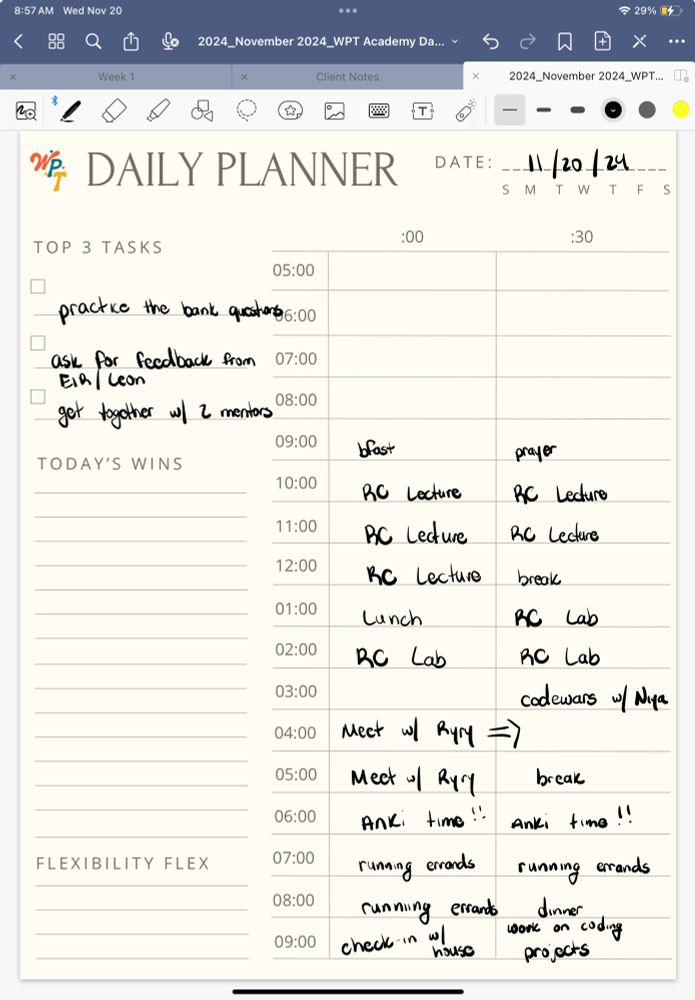 8:57 AM Wed Nov 20
29%
2024_November 2024_WPT Academy Da...
Week 1
Client Notes
2024_November 2024_WPT...
WPT
DAILY PLANNER
DATE: 11/20/24
S M T W T F S
TOP 3 TASKS
practice the bank questions
ask for feedback from
EIR/Leon
get together w/ 2 mentors
TODAY'S WINS
FLEXIBILITY FLEX
:00 :30
05:00
06:00
07:00
08:00
09:00 bfast prayer
10:00 RC Lecture RC Lecture
11:00 RC Lecture RC Lecture
12:00 RC Lecture break
01:00 Lunch RC Lab
02:00 RC Lab RC Lab
03:00 codewars w/ Niya
04:00 Meet w/ Ryry =>
05:00 Meet w/ Ryry break
06:00 Anki time!! Anki time!!
07:00 running errands running errands
08:00 running errands dinner
09:00 check-in w/ house work on coding projects